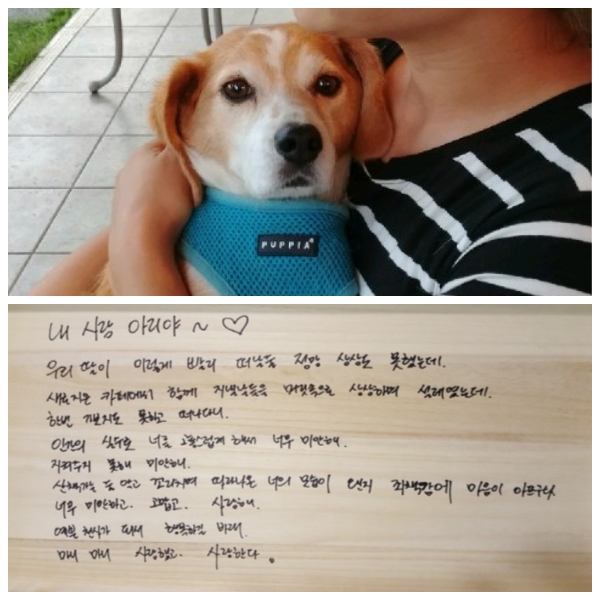 PUPPIA
내 사랑 아리야 ~ ♡
우리 딸이 이렇게 빨리 떠날줄 정말 상상도 못했는데.
새로지은 카페에서 함께 지낼날들을 머릿속으로 상상하며 설레였는데.
한번 가보지도 못하고 떠나다니.
인간의 실수로 너를 고통스럽게 해서 너무 미안해.
지켜주지 못해 미안해.
산책가는 줄 알고 꼬리치며 따라나온 너의 모습이 왠지 죄책감에 마음이 아프구나
너무 미안하고. 고맙고. 사랑해.
예쁜 천사가 되서 행복하길 바래.
마니 마니 사랑했고. 사랑한다.